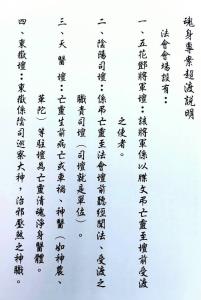 魂身專案超渡說明
法會會場設有：
一、五花鄧將軍壇：該將軍係以牒文弔亡靈至壇前受渡
之使者。
二、陰陽司壇：係弔亡靈至法會壇前聽經聞法、受渡之
職責司壇（司壇就是單位）。
三、天醫壇：亡靈生前病亡或車禍、神醫（如神農、
華陀）等駐壇為亡靈清魂淨身醫體。
四、東嶽壇：東嶽係陰司巡察大神，治邪壓煞之神職。